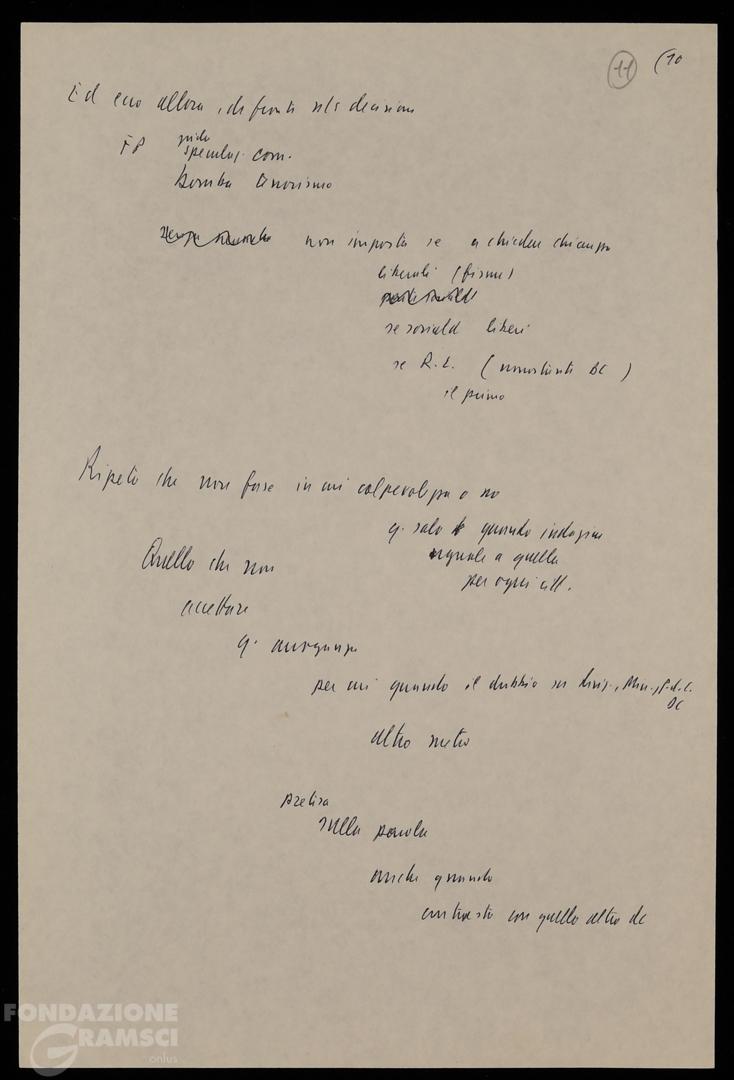 11 (10
Ed ecco allora, di fronte alla decisione
FP grido
speculaz. com.
bomba terrorismo
non importa se a chiedere chiarezza
liberali (firme)
se sociald liberi
se R.L. (nonostante DC)
il primo
Ripeto che non fosse in cui colpevolezza o no
q. solo quando indagine
uguale a quella
per ogni citt.
Quello che non
accettare
q. arroganza
per cui quando il dubbio su Pres. Min.
DC
altro metro
sulla parola
anche quando
contrasto con quello altro dc
FONDAZIONE
GRAMSCI
onlus